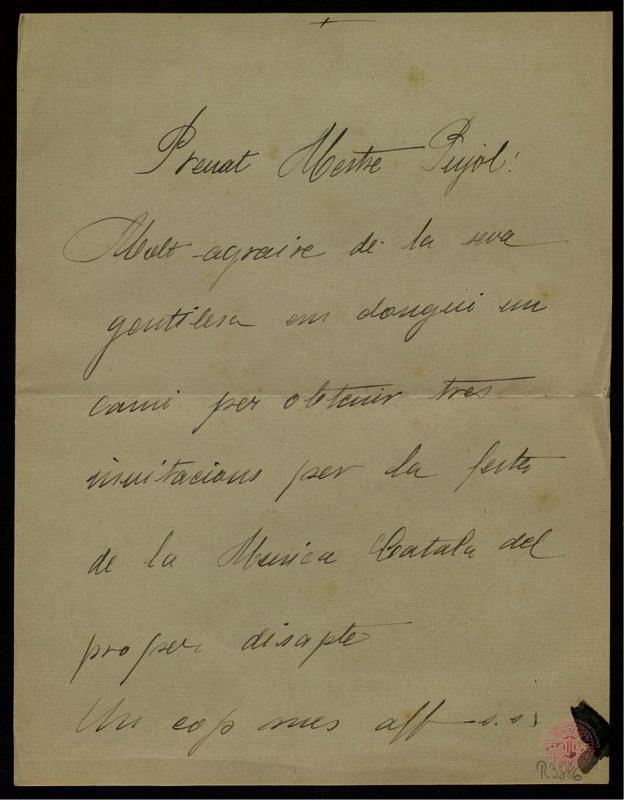 Preuat Mestre Pujol:
Molt agraire de la seva
gentilesa em dongui un
cami per obtenir tres
invitacions per la festa
de la Musica Catala del
proper disapte
Un cop mes aff s.s.
R3886